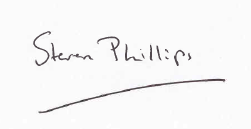 Steven Phillips